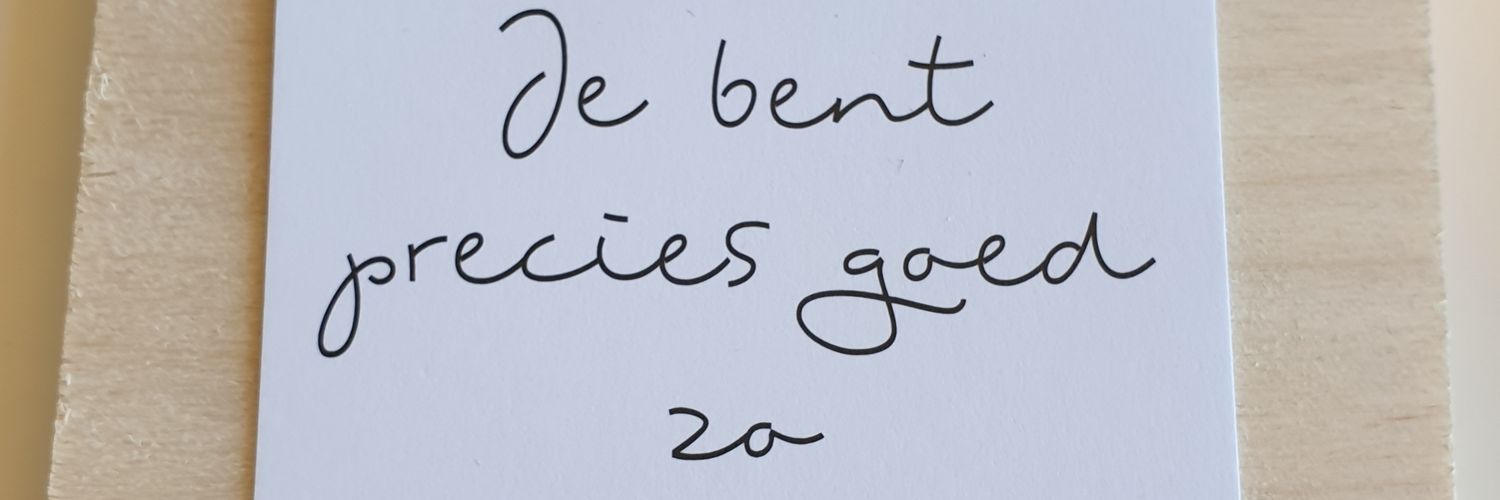 Je bent
precies goed
zo